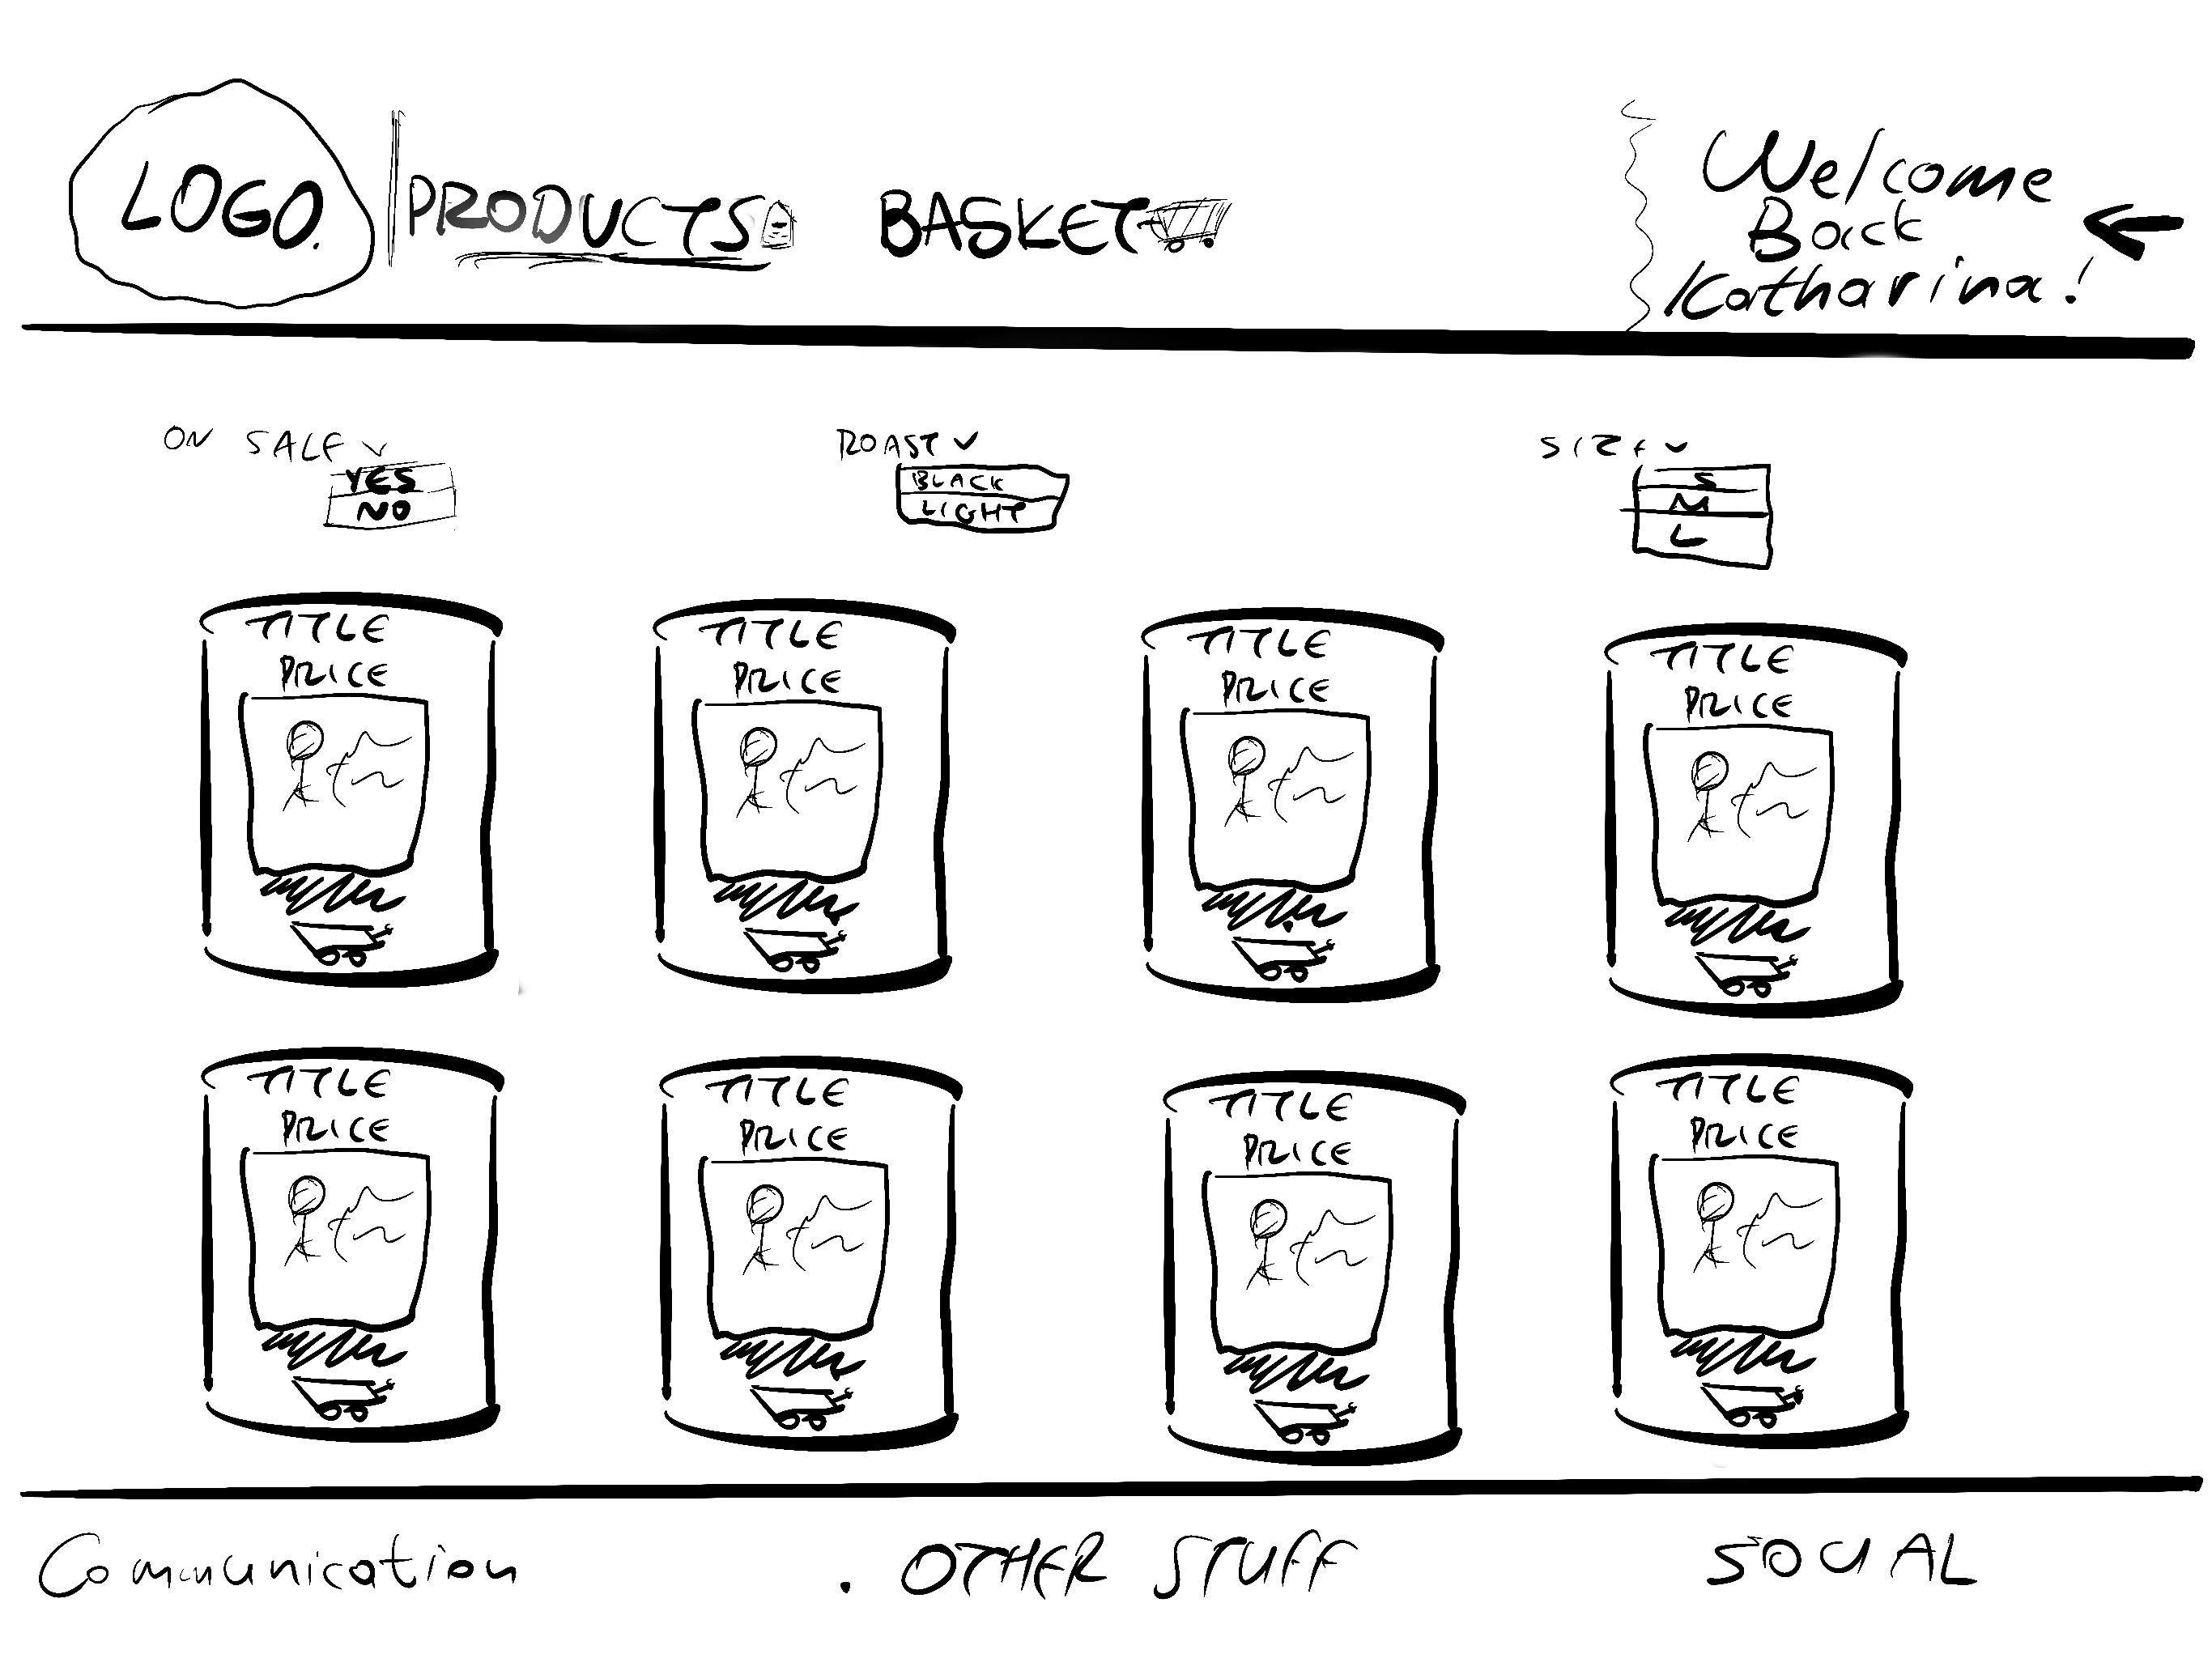 LOGO.
PRODUCTS
BASKET
Welcome
Back
Katharina!
ON SALE
YES
NO
ROAST
BLACK
LIGHT
SIZE
S
M
L
TITLE
PRICE
TITLE
PRICE
TITLE
PRICE
TITLE
PRICE
TITLE
PRICE
TITLE
PRICE
TITLE
PRICE
TITLE
PRICE
Communication
. OTHER STUFF
SOCIAL